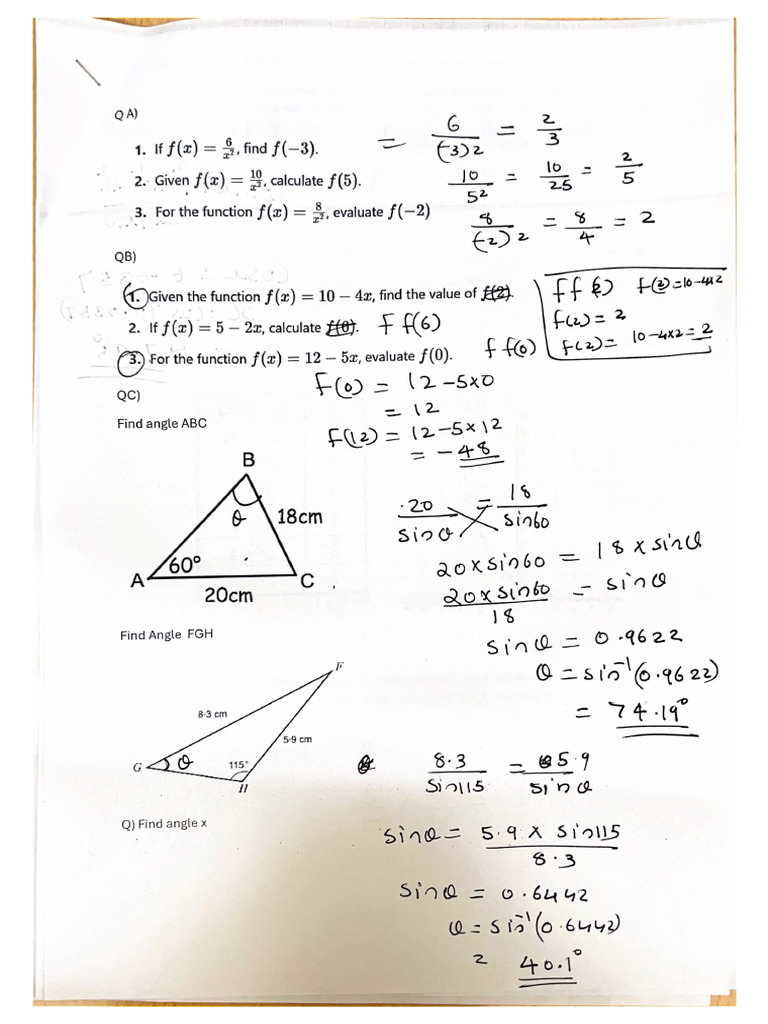 Q A)
1. If f(x) = 6/x², find f(−3). = 6/(-3)2 = 2/3
2. Given f(x) = 10/x², calculate f(5). 10/5² = 10/25 = 2/5
3. For the function f(x) = 8/x², evaluate f(−2) 8/(-2)2 = 8/4 = 2
QB)
1. Given the function f(x) = 10 − 4x, find the value of f(2).
ff(2) f(2)=10-4x2
f(2) = 2
f(2) = 10-4x2 = 2
2. If f(x) = 5 − 2x, calculate f(6). F f(6)
3. For the function f(x) = 12 − 5x, evaluate f(0). f f(0)
F(0) = 12-5x0
= 12
f(12) = 12-5x12
= -48
QC)
Find angle ABC
B
θ
18cm
60°
A
C
20cm
20/sinθ = 18/sin60
20xsin60 = 18xsinθ
20xsin60/18 = sinθ
sinθ = 0.9622
θ = sin⁻¹(0.9622)
= 74.19°
Find Angle FGH
F
8·3 cm
5·9 cm
G
θ
115°
H
8.3/Sin115 = 5.9/sinθ
sinθ = 5.9 x sin115/8.3
sinθ = 0.6442
θ = sin⁻¹(0.6442)
= 40.1°
Q) Find angle x